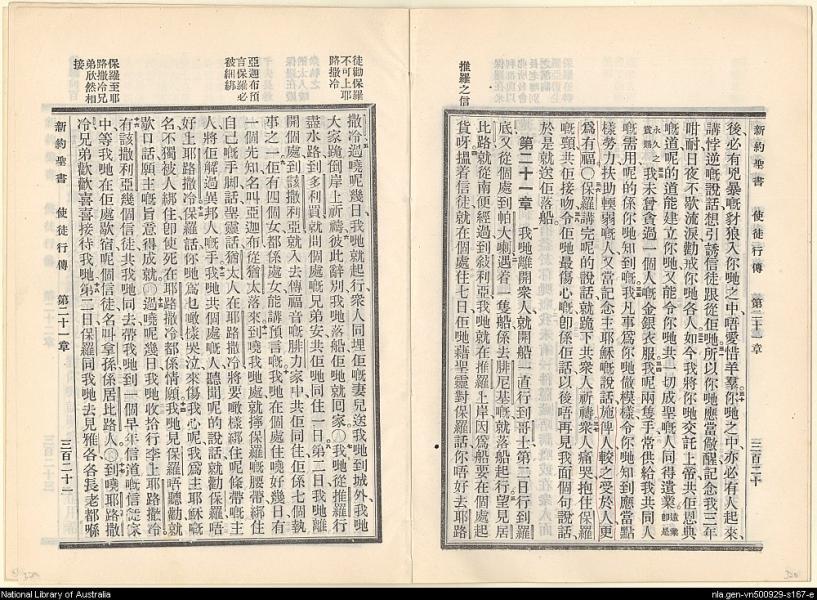 新約聖書 使徒行傳 第二十章 三百二十
後必有兇暴嘅豺狼入你哋之中唔愛惜羊羣你哋之中亦必有人起來
講悖逆嘅說話想引誘信徒跟從佢哋所以你哋應當儆醒記念我三年
咁耐日夜不歇流淚勸戒你哋各人如今我將你哋交託上帝共佢恩典
嘅道呢的道能建立你哋又能令你哋共一切成聖嘅人同得遺業遺業卽是
永久之賞賜我未曾貪過一個人嘅金銀衣服我呢兩隻手常供給我共同人
嘅需用呢的係你哋知到嘅我凡事爲你哋做模樣令你哋知到應當點
樣勞力扶助輭弱嘅人又當記念主耶穌嘅說話施俾人較之受於人更
爲有福○保羅講完呢的說話就跪下共衆人祈禱衆人痛哭抱住保羅
嘅頸共佢接吻令佢哋最傷心嘅卽係佢話以後唔再見我面個句說話
於是就送佢落船
第二十一章 我哋離開衆人就開船一直行到哥士第二日行到羅
底又從個處到帕大喇遇着一隻船係去腓尼基嘅就落船起行望見居
比路就從南便經過到敍利亞我哋就在推羅上岸因爲船要在個處起
貨呀搵着信徒就在個處住七日佢哋藉聖靈對保羅話你唔好去耶路
推羅之信
徒勸保羅
不可上耶
路撒冷
撒冷過嘵呢幾日我哋就起行衆人同埋佢嘅妻兒送我哋到城外我哋
大家跪倒岸上祈禱彼此辭別我哋落船佢哋就回家○我哋從推羅行
盡水路到多利買就問個處嘅兄弟安共佢哋同住一日第二日我哋離
開個處到該撒利亞就入去傳福音嘅腓力家中共佢同住佢係七個執
事之一佢有四個女都係處女能講預言嘅我哋在個處住嘵好幾日有
一個先知名叫亞迦布從猶太落來到嘵我哋處就攞保羅嘅腰帶綁住
自己嘅手脚話聖靈話猶太人在耶路撒冷將要噉樣綁住呢條帶嘅主
人將佢解過異邦人嘅手我哋共個處嘅人聽聞呢的說話就勸保羅唔
好上耶路撒冷保羅話你哋爲乜噉樣哭泣來傷我心呢我爲主耶穌嘅
名不獨被人綁住卽使死在耶路撒冷都係情願我哋見保羅唔聽勸就
歇口話願主嘅旨意得成就○過嘵呢幾日我哋收拾行李上耶路撒冷
有該撒利亞幾個信徒共我哋同去帶我哋到一個早年信道嘅信徒家
中等我哋在佢處歇宿呢個信徒名叫拿孫係居比路人○到嘵耶路撒
冷兄弟歡歡喜喜接待我哋第二日保羅同我哋去見雅各各長老都喺
新約聖書 使徒行傳 第二十一章 三百二十一
亞迦布預
言保羅必
被綑綁
保羅至耶
路撒冷兄
弟欣然相
接
National Library of Australia
nla.gen-vn500929-s167-e